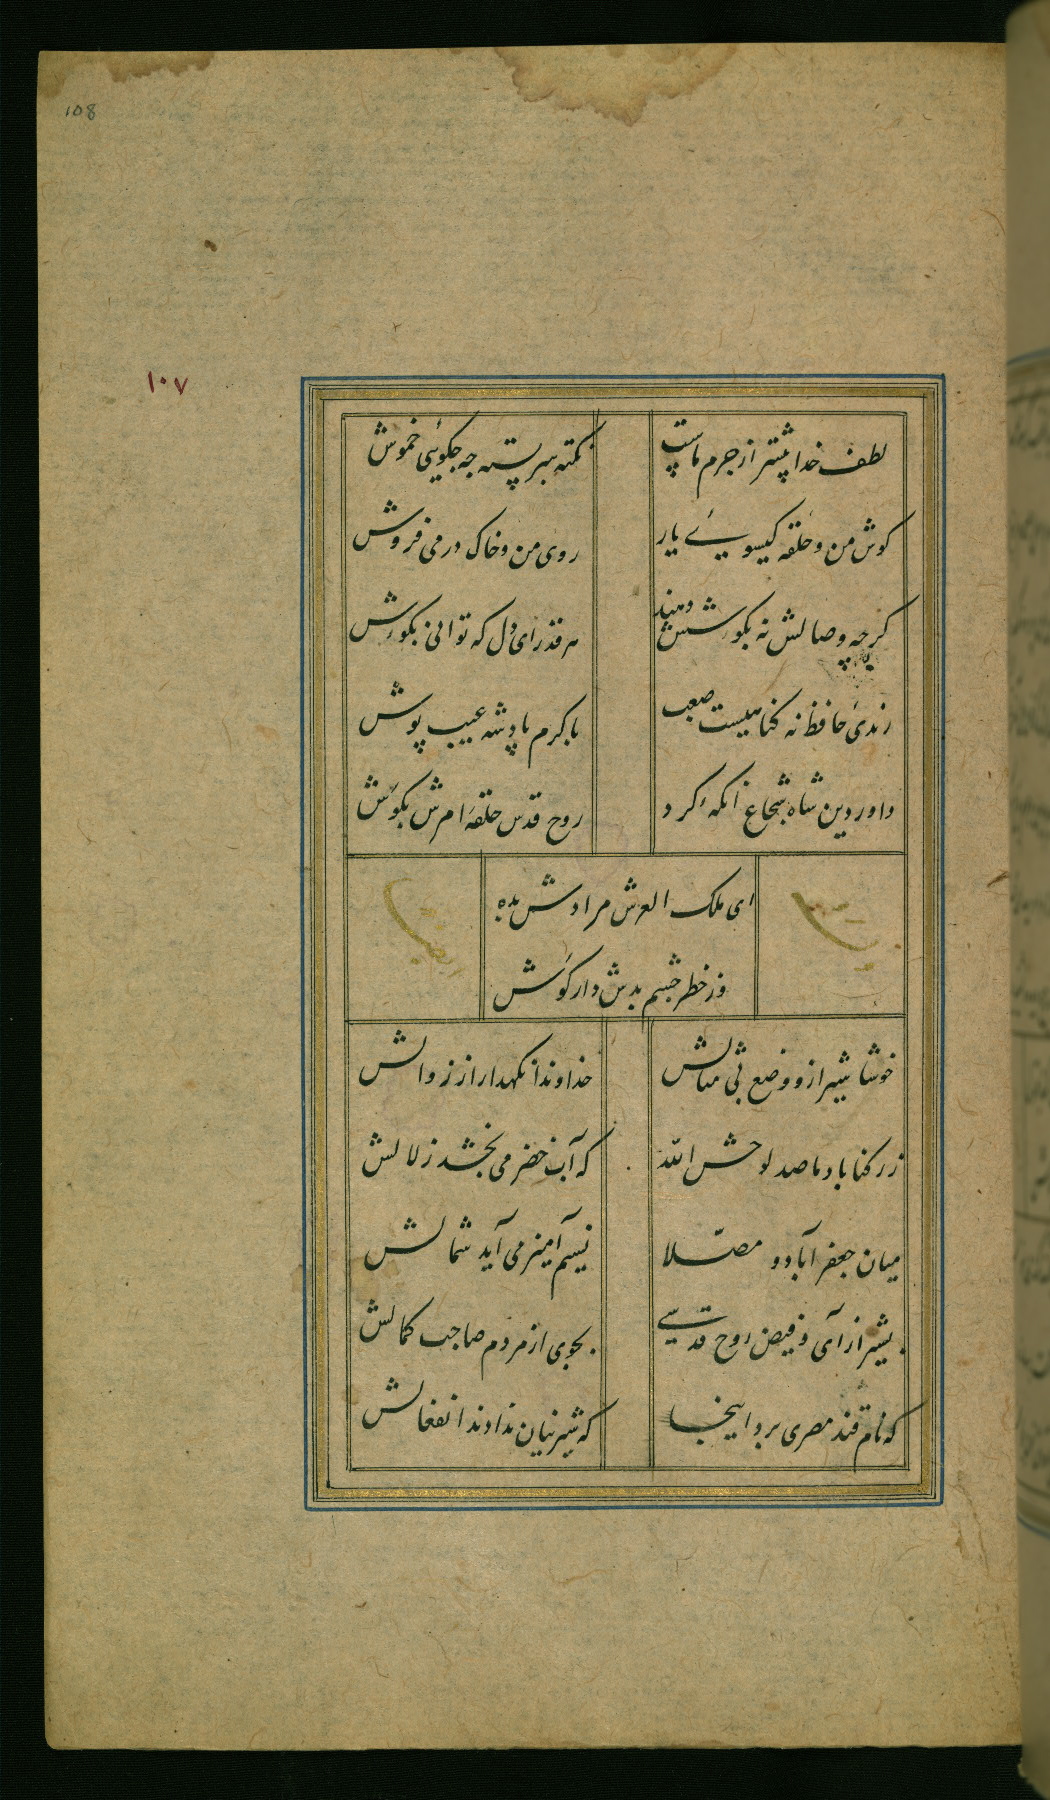 108
۱۰۷
لطف خدا بیشتر از جرم ماست
نکته سربسته چه گویی خموش
گوش من و حلقه گیسوی یار
روی من و خاک در می فروش
گرچه وصالش نه بکوشش دهند
هر قدر ای دل که توانی بکوش
رندی حافظ نه گناهیست صعب
با کرم پادشه عیب پوش
داور دین شاه شجاع آنکه کرد
روح قدس حلقه امرش بگوش
ای ملک العرش مرادش بده
وز خطر چشم بدش دار گوش
خوشا شیراز و وضع بی مثالش
خداوندا نگهدار از زوالش
ز رکناباد ما صد لوحش الله
که آب خضر می بخشد زلالش
میان جعفرآباد و مصلا
نسیم آمیز می آید شمالش
بشیراز آی و فیض روح قدسی
بجوی از مردم صاحب کمالش
که نام قند مصری برد اینجا
که شیرنیان ندادند انفعالش